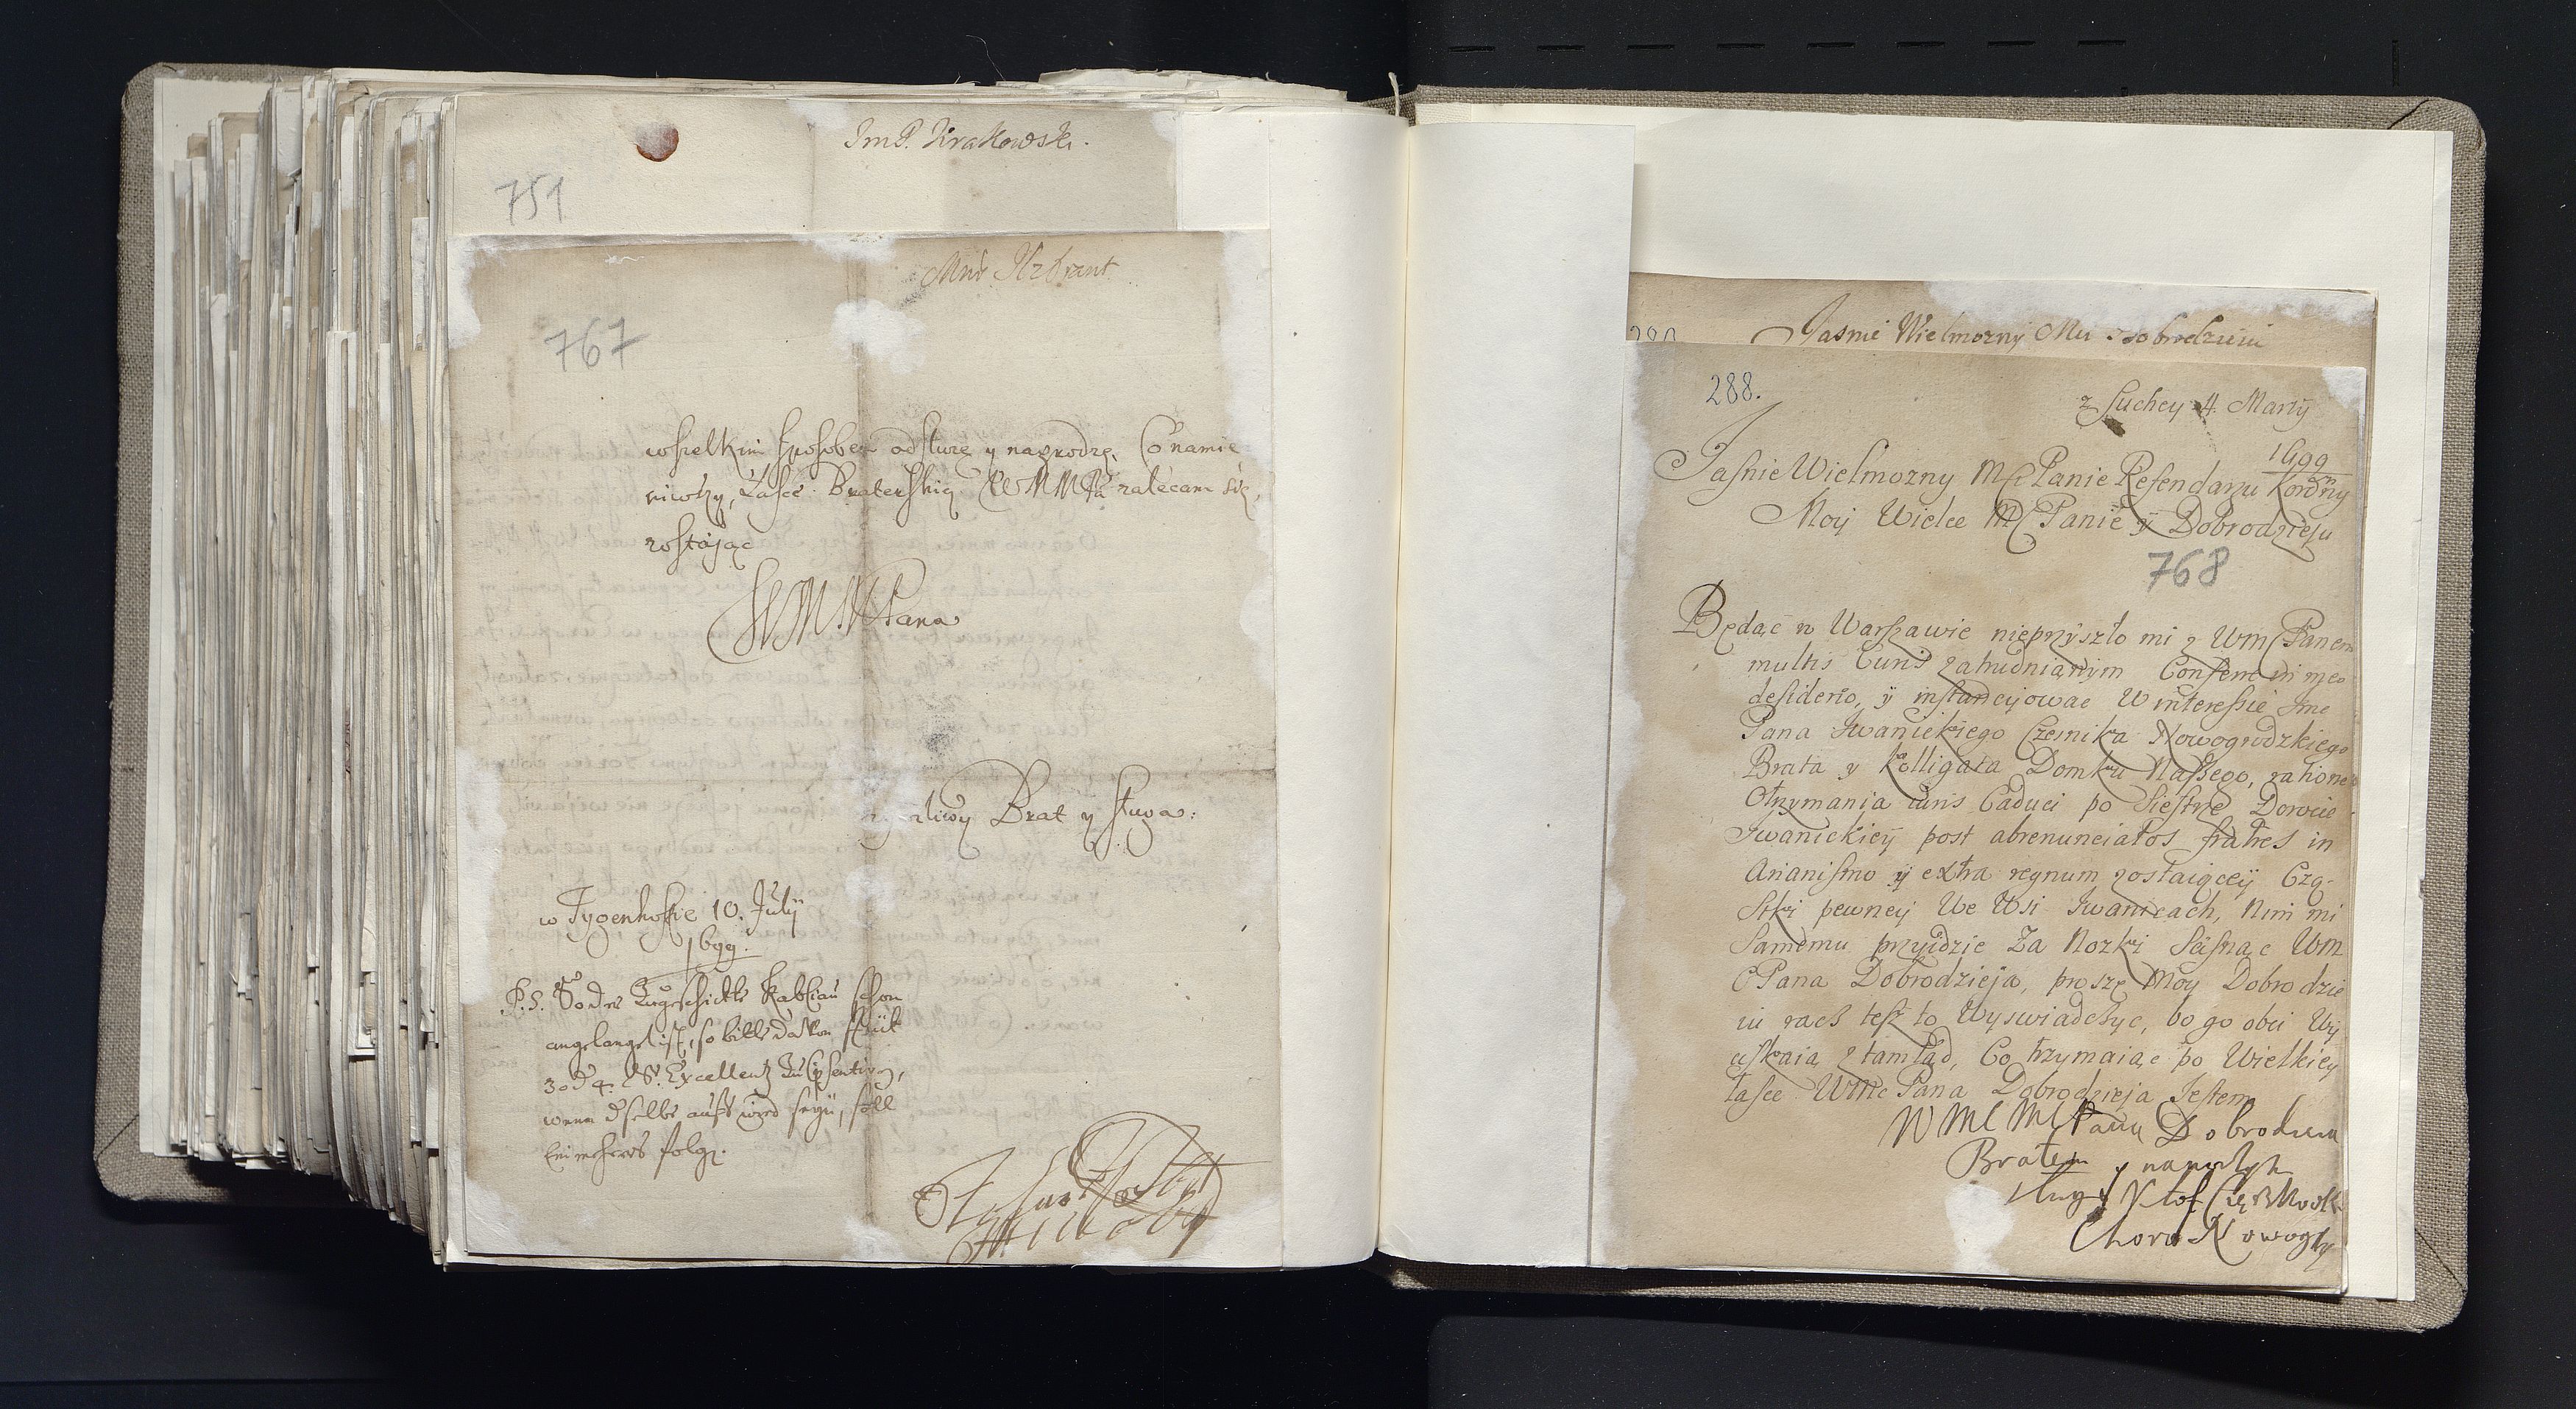 JmP. Krakowski.
751
767
wszelkim sposobem odsłużę y nagrodzę. Co namie
niwszy, Łasce Braterskiey WMMPa zalecam się,
zostając
WMMPana
Brat y sługa:
w Tygenhofie 10. Julÿ
1699.
P.S. So der Zugeschickte Kabliau schon
angelanget ist, so bitte davon stük
3 od 4. Sr. Excellentz zu
wenn dselbe auff wird seyn, soll
folgen.
Jasnie Wielmozny Mu Dobrodzieiu
288.
z Suchey 4. Martÿ
1699
Jasnie Wielmozny Mſc Panie Referdarzu Koronny
Moy Wielce Mſc Panie ÿ Dobrodzieju
768
Będąc w Warszawie nieprzyszło mi z Wmſc Panem
multis Curis zatrudnianym Conferre in meo
desiderio, ÿ instancyjowac W interessie Jme
Pana Iwanickiego Czesnika Nowogrodzkiego
Brata y Kolligata Domku Naszego, ratione
Otrzymania iuris Caduci po Siestrze Dorocie
Iwanickieÿ post abrenunciatos fratres in
Arianismo ÿ extra regnum zostaiąceÿ Czą-
stki pewneÿ We Wsi Iwanicach, Nim mi
Samemu przyidzie Za Nozki Scisnąc Wm
Pana Dobrodzieja, proszę Moy Dobrodzie
iu racz tesz to Wyswiadczyc, bo go obci Wy
ciskaią ztamtąd, Co trzymaiąc po Wielkiey
łasce Wmc Pana Dobrodzieja Jestem
WMC MC Pana Dobrodzieia
Bratem y
sługą
Chorą Nowogr